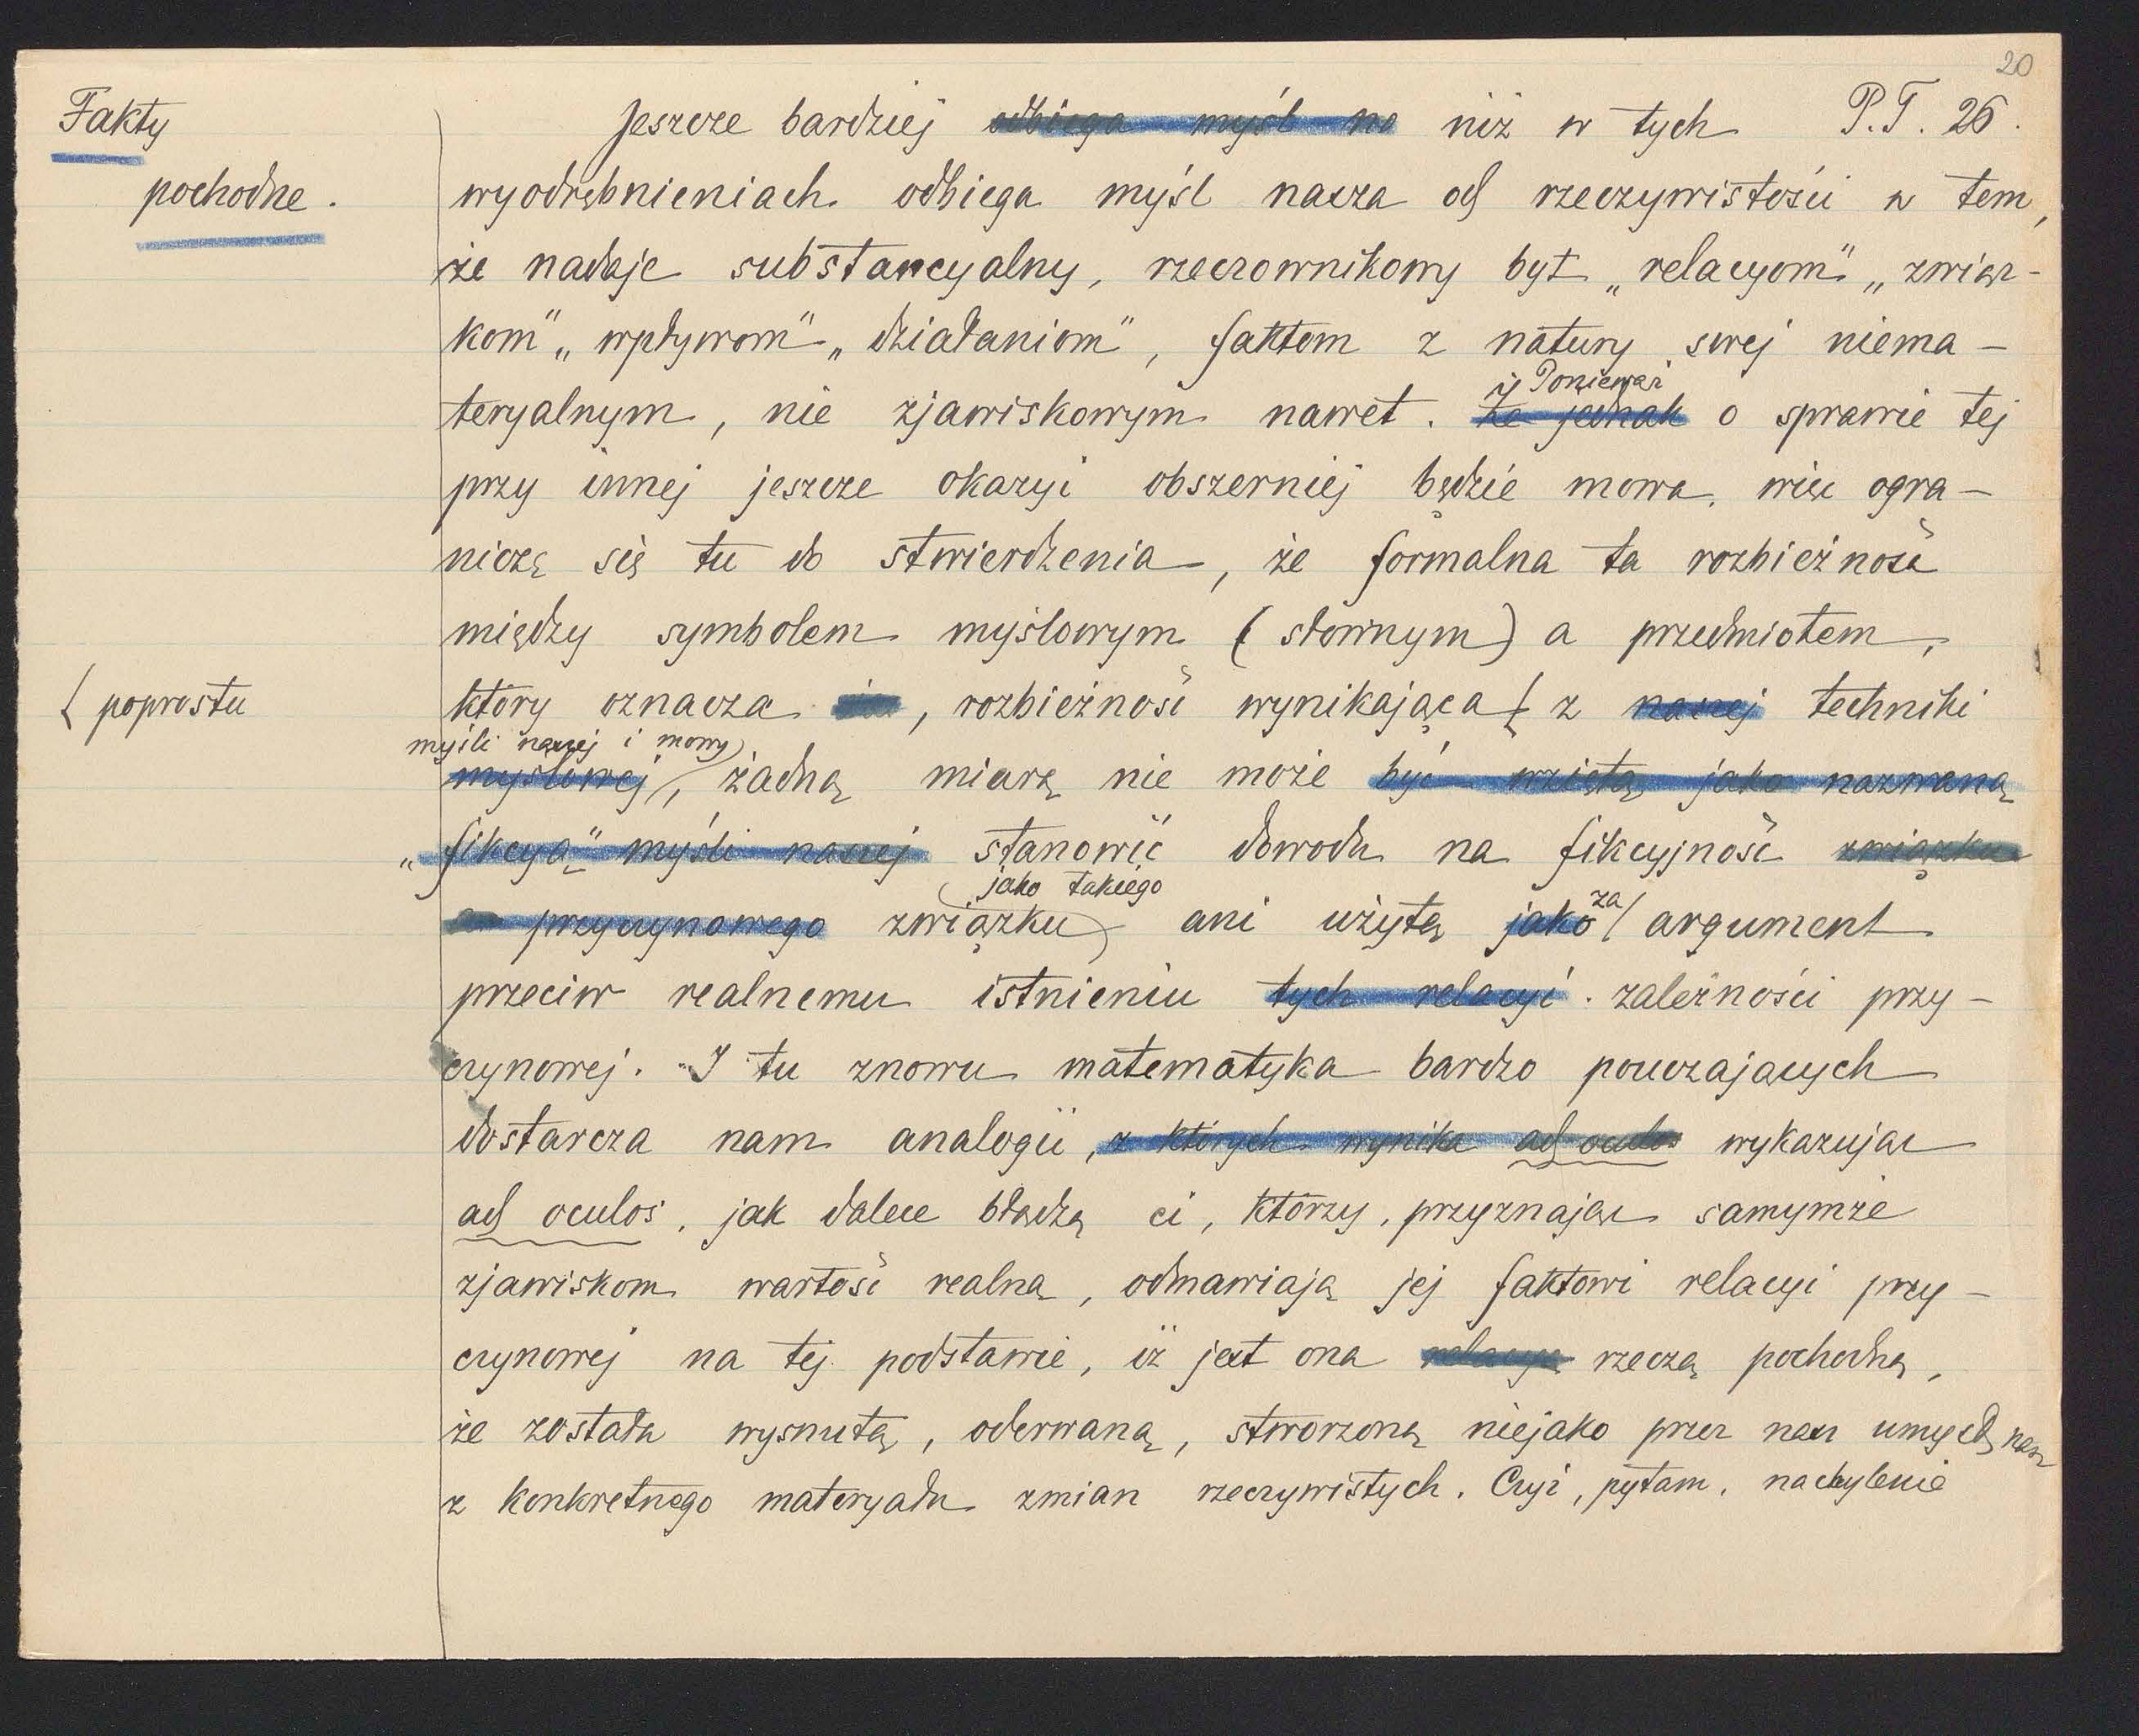 20
Fakty
pochodne.
P.T. 26.
Jeszcze bardziej odbiega myśl na niż w tych
wyodrębnieniach odbiega myśl nasza od rzeczywistości w tem,
że nadaje substancyalny, rzeczownikowy byt „relacyom" „związ-
kom" „wpływom" „działaniom", faktom z natury swej niema-
teryalnym, nie zjawiskowym nawet. Że jednak o sprawie tej
Ponieważ
przy innej jeszcze okazyi obszerniej będzie mowa, więc ogra-
niczę się tu do stwierdzenia, że formalna ta rozbieżność
między symbolem myślowym (słownym) a przedmiotem,
który oznacza, rozbieżność wynikająca { z naszej techniki
{ poprostu
myśli naszej i mowy
myślowej, żadną miarą nie może być wziętą jako nazwaną
„fikcyą" myśli naszej stanowić dowodu na fikcyjność związku
jako takiego
przyczynowego związku ani użytą jako argument
za
przeciw realnemu istnieniu tych relacyi zależności przy-
czynowej. I tu znowu matematyka bardzo pouczających
dostarcza nam analogii, z których wynika ad oculos wykazując
ad oculos, jak dalece błądzą ci, którzy, przyznając samymże
zjawiskom wartość realną, odmawiają jej faktowi relacyi przy-
czynowej na tej podstawie, iż jest ona relacyą rzeczą pochodną,
że została wysnutą, oderwaną, stworzoną niejako przez nasz umysł nasz
z konkretnego materyału zmian rzeczywistych. Czyż, pytam, nachylenie